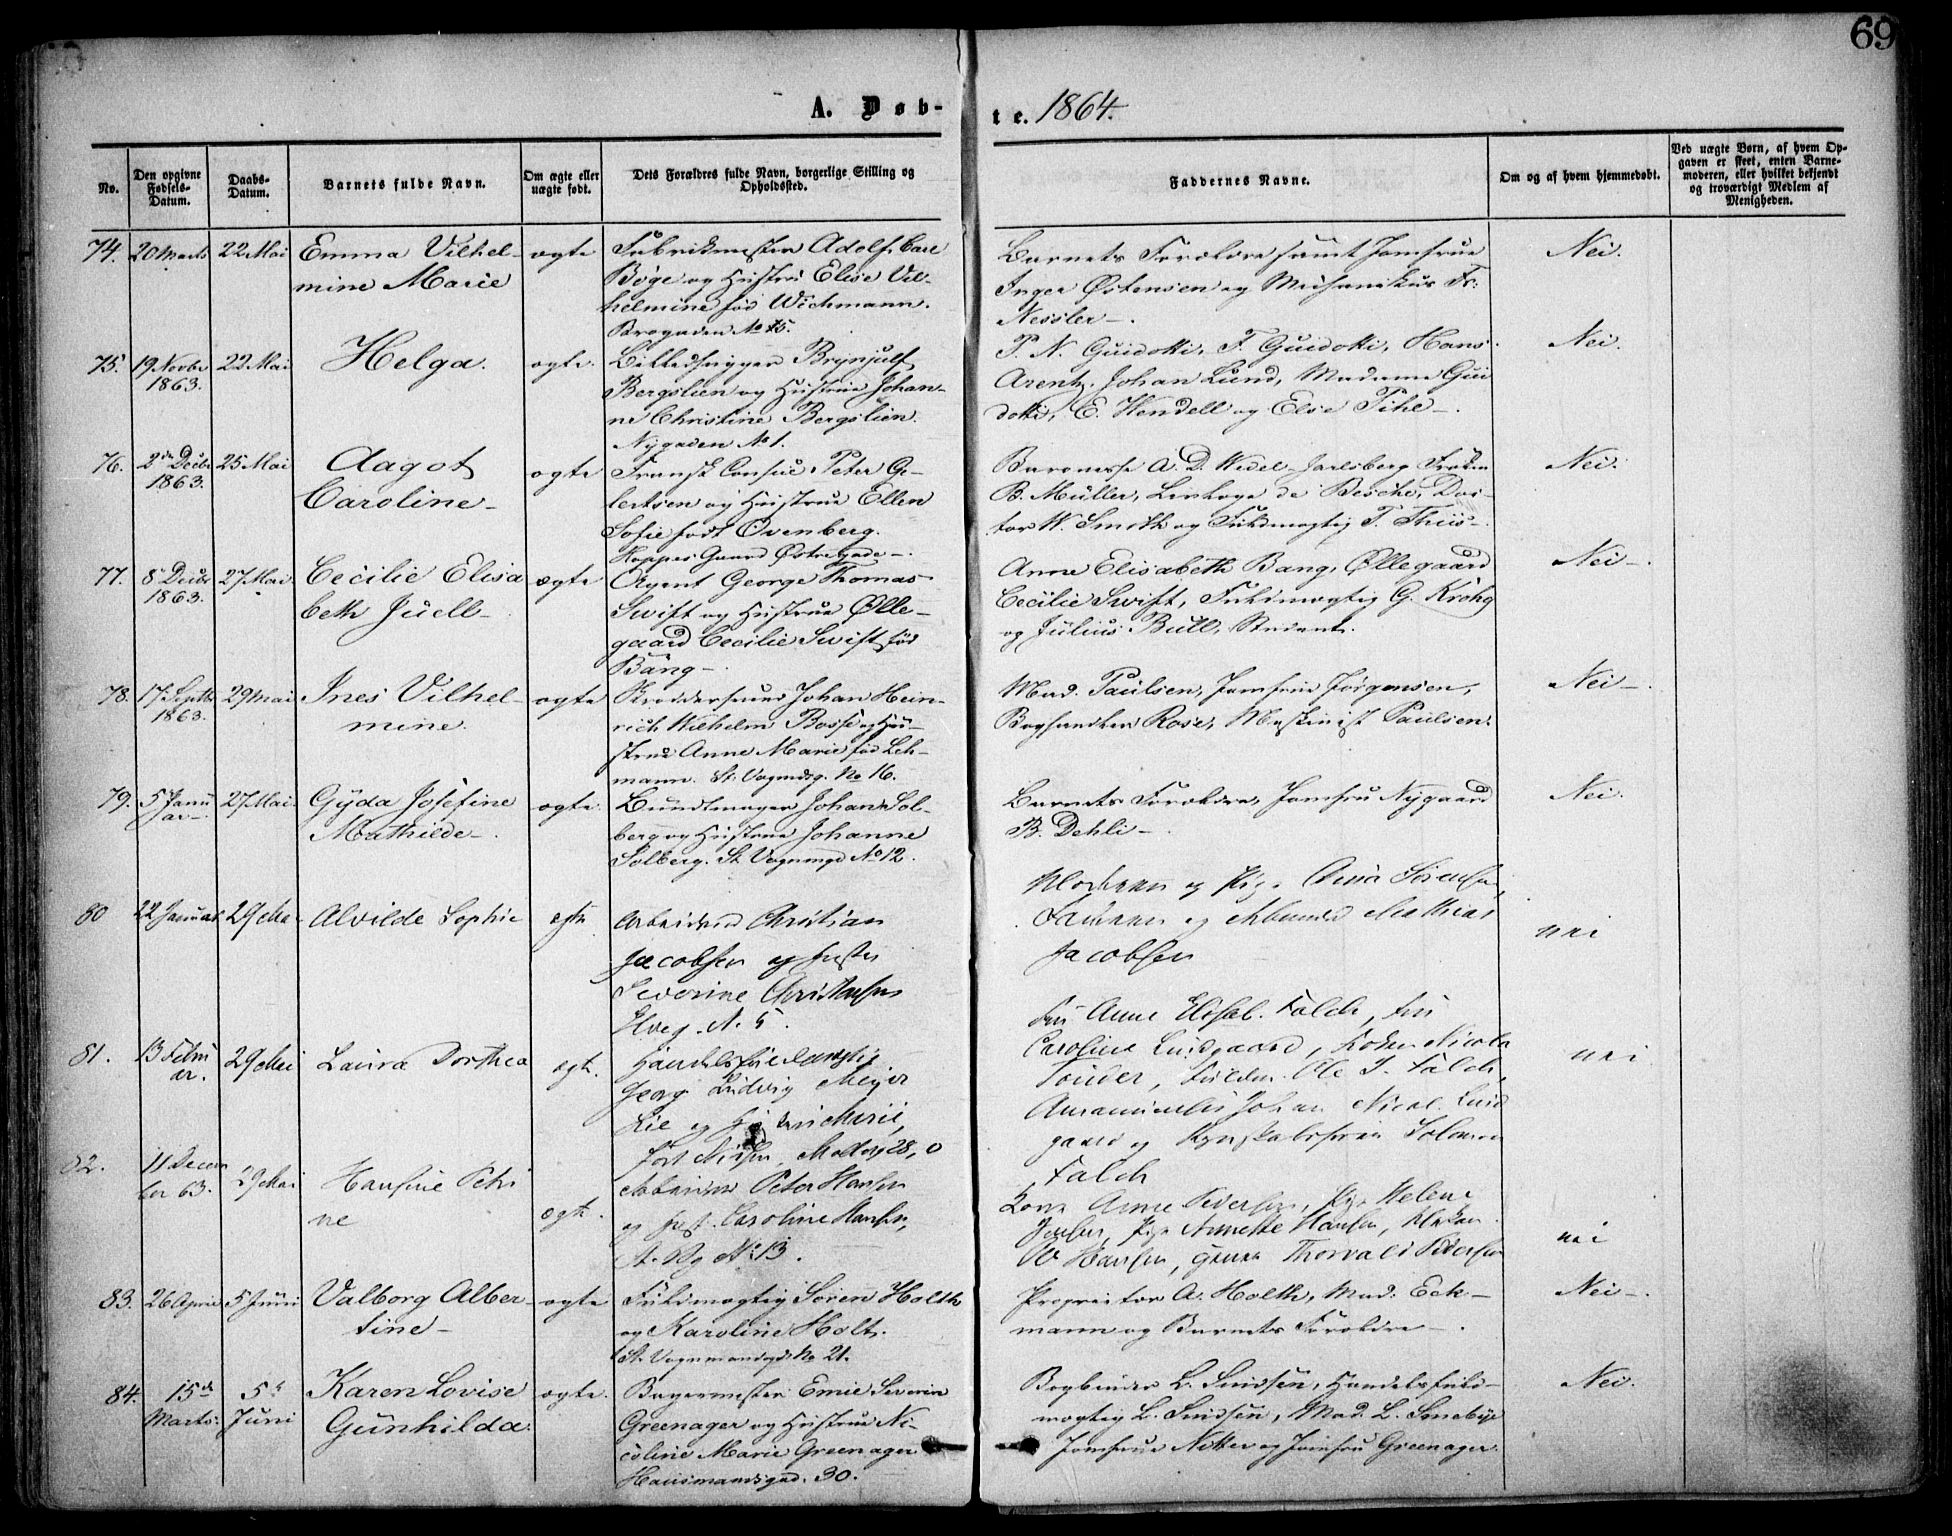 69
A. Døb-
te. 1864.
No.
Den opgivne Fødsels-Datum.
Daabs-Datum.
Barnets fulde Navn.
Om ægte eller uægte født.
Dets Forældres fulde Navn, borgerlige Stilling og Opholdssted.
Faddernes Navne.
Om og af hvem hjemmedøbt.
Ved uægte Børn, af hvem Opgaven er skeet, enten Barnemoderen, eller hvilket bekjendt og troværdigt Medlem af Menigheden.
74. 20 Marts 22 Mai Emma Vilhel-
mine Marie
ægte
Fabrikmester Adolf Carl
Böge og Hustru Elise Vil-
helmine fød Wichmann.
Brogaden No 15.
Barnets Forældre samt Jomfrue
Inger Østensen og Mechanikus Fr.
Nessler
Nei.
75. 19 Novbr 1863. 22 Mai Helga.
ægte.
Billedhugger Brynjulf
Bergslien og Hustrue Johan-
ne Christine Bergslien.
Nygaden No 1.
P. N. Guidotti, F. Guidotti, Hans
Arentz, Johan Lund, Madame Gui
dotti, E. Wendell og Else Pihl
Nei.
76. 2den Decbr 1863. 25 Mai Aagot
Caroline
ægte
Fransk Consul Peter Ge-
lertsen og Hustrue Ellen
Sofie født Ovenberg.
Hoppes Gaard Østregade.
Baronesse A. D. Wedel-Jarlsberg, Frøken
B. Müller, de Besche, Doc-
tor W. Smith og Fuldmægtig T. Thiis.
Nei.
77. 8 Decbr 1863. 27 Mai Cecilie Elisa
beth Juell
ægte
Agent George Thomas
Swift og Hustrue Ølle-
gaard Cecilie Swift fød
Bang.
Anne Elisabeth Bang, Øllegaard
Cecilie Swift, Fuldmægtig G. Krohg
og Julius Bull, Student.
Nei.
78. 17 Septbr 1863. 29 Mai Ines Vilhel-
mine.
ægte
Skræddersvend Johan Hein-
rich Wilhelm Bosse og Hu-
strue Anne Marie fød Leh-
mann. St. Vognmdg. No 16.
Mad. Paulsen, Jomfrue Jørgensen,
Bogtrykker Rose, Maskinist Paulsen.
Nei.
79. 5 Janu
ar 27 Mai. Gyda Josefine
Mathilde.
ægte.
Bundtmager Johan Sol-
berg og Hustrue Johanne
Solberg. St. Vognmgd No 12.
Barnets Forældre, Jomfru Nygaard
B. Dehli.
Nei.
80 22 Januar 29 Mai Alvilde Sophie
ægte
Arbeidsmd Christian
Jacobsen og Hustru
Severine Christensen
Elveg. N. 5.
og Pige Anna Sørensen,
og Arbmand Mathias
Jacobsen
nei
81. 13 Febru
ar. 29 Mai Laura Dorthea
ægte.
Handelsfuldmægtig
Georg Ludvig Meyer
Lie og Marie,
født Nissen, 28, 0
Fru Anne Elisab. Falch, Fru
Caroline Lundgaard, Frøken Nicola
Fuldm. Ole J. Falch,
Johan Nicol. Lund
gaard og Solomon
Falch
nei
82. 11 Decem
ber 63. 29 Mai Hansine Petri
ne
ægte.
Arbeidsm Peter Hansen
og Hust. Caroline Hansen,
St. Vg No 13.
Kone Anne Pedersen, Pige Helene
Pige Annette Hansen,
Hansen, Thorvald Pedersen
nei
83. 26 April 5 Juni Valborg Alber-
tine
ægte
Fuldmægtig Søren Holth
og Karoline Holt.
St. Vognmandsgd. No 21.
Proprietær A. Holth, Mad. Eck-
mann og Barnets Forældre.
Nei.
84. 15de
Marts. 5te
Juni Karen Lovise
Gunhilda.
ægte.
Bagermester Emil Severin
Greenager og Hustrue Ni-
coline Marie Greenager
Hausmandsgad. 30.
Bogbinder L. Smidsen, Handelsfuld-
mægtig L. Smidsen, Mad. L. Smebye
Jomfrue Netter og Jomfru Greenager.
Nei.